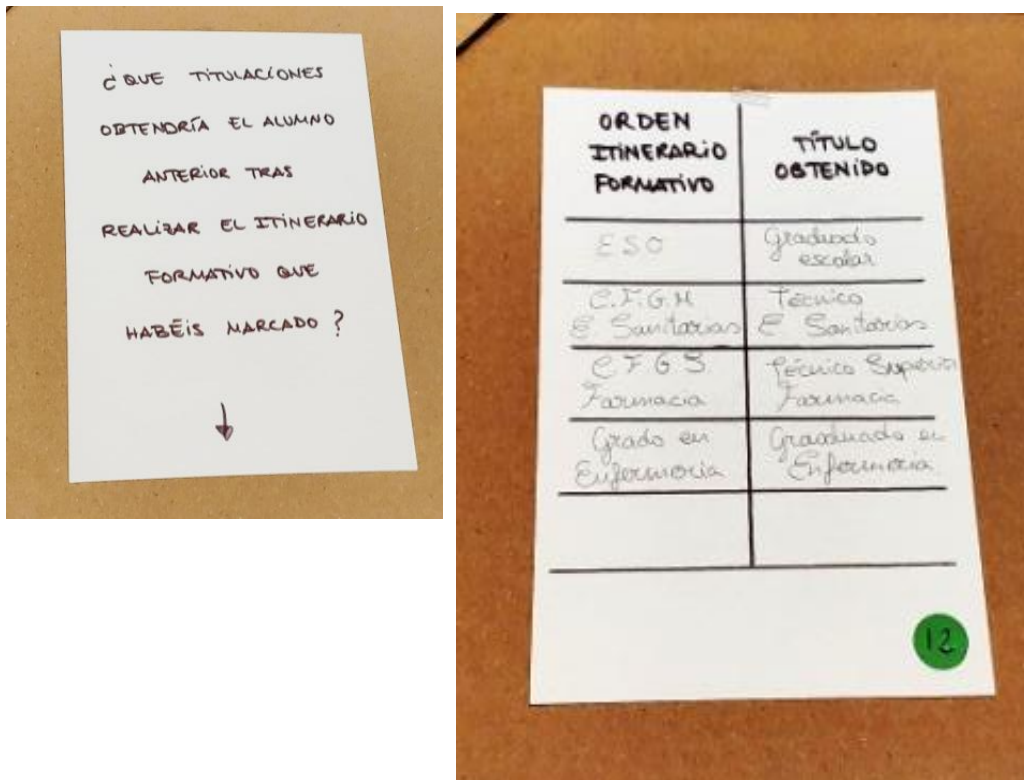 ¿QUE TITULACIONES
OBTENDRÍA EL ALUMNO
ANTERIOR TRAS
REALIZAR EL ITINERARIO
FORMATIVO QUE
HABÉIS MARCADO?
ORDEN
ITINERARIO
FORMATIVO
TÍTULO
OBTENIDO
ESO
Graduado
escolar
C.F.G.M
E Sanitarias
Técnico
E Sanitarias
C F G S
Farmacia
Técnico Superior
Farmacia
Grado en
Enfermería
Graduado en
Enfermería
12